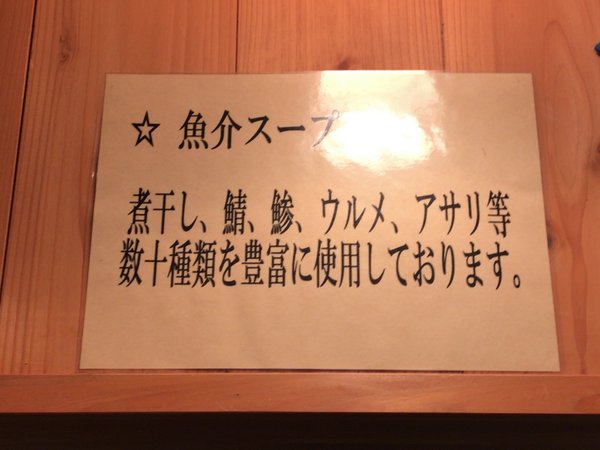 ☆ 魚介スープ
煮干し、鯖、鯵、ウルメ、アサリ等
数十種類を豊富に使用しております。